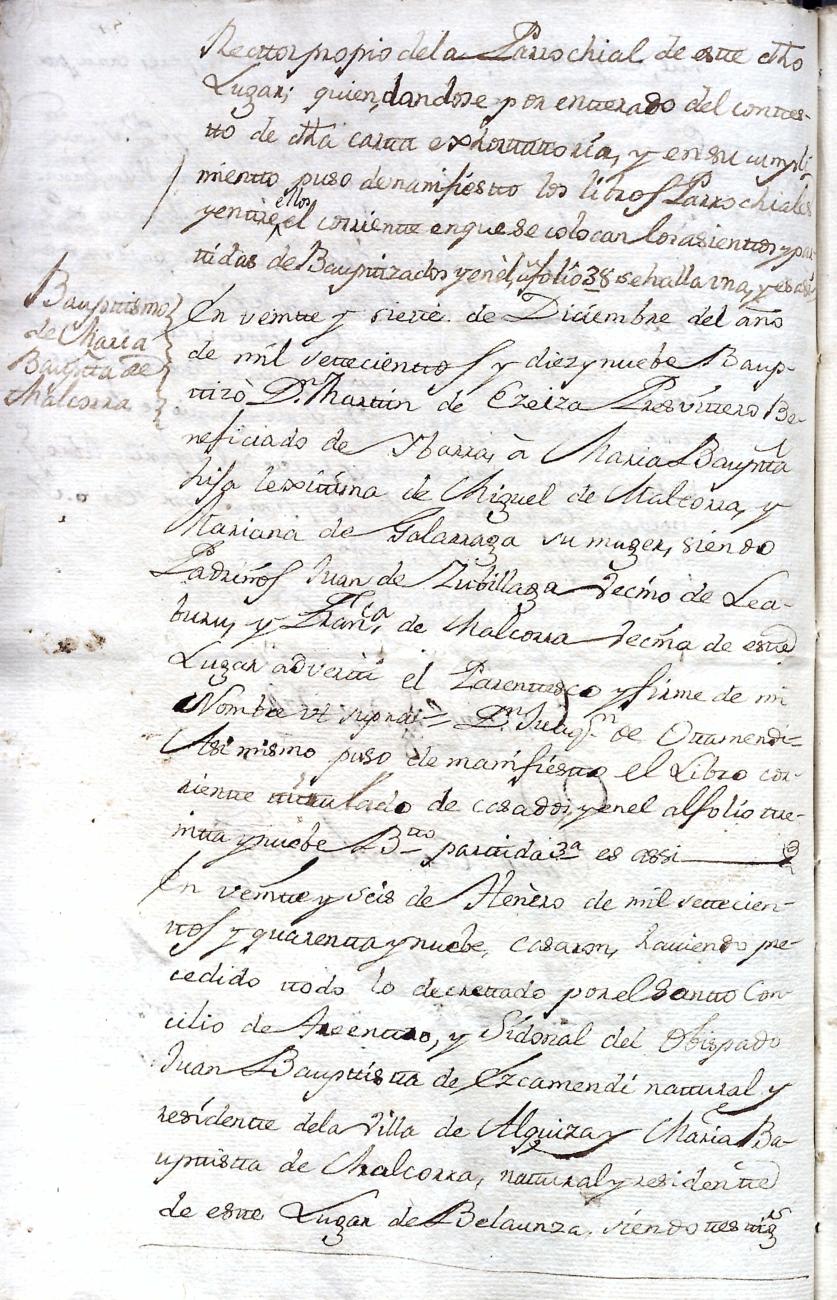 Recttor propio de la Parrochial de estte dho
Lugar; quien, dandose por entterado del conttes-
tto de dha cartta exhorttattoria, y en su cumpli-
mientto puso de manifiestto los libros Parrochiales
y enttre ellos el corriente en que se colocan los asienttos y par-
ttidas de Bauptizados y en el, al folio 38 se halla una, y es asi
Bauptismo
de Maria
Bauptta de
Malcorra
En veintte y siette de Diciembre del año
de mil settecienttos y diez y nuebe Baup-
ttizò Dn. Marttin de Ezeiza Presvittero Be-
neficiado de Ybarra, à Maria Bauptta
hija lexittima de Miguel de Malcorra, y
Mariana de Galarraga su muger, siendo
Padrinos Juan de Zubillaga Vecino de Lea-
buru, y Franca. de Malcorra Vecina de estte
Lugar adverttí el Parenttesco y firme de mi
Nombre ut supra = Dn. Juaqn. de Ottamendi =
Asi mismo puso de manifiestto el Libro cor-
rientte ttittulado de casados, y en el al folio tre-
intta y nuebe Btto partida 3a es assi
En veintte y seis de Henèro de mil settecien-
ttos y quarentta y nuebe, casaron, haviendo pre-
cedido ttodo lo decrettado por el Santto Con-
cilio de Trentto, y Sidonal del Obispado
Juan Bauptistta de Ezcamendi nattural y
residentte de la Villa de Alquiza y Maria Ba-
upttistta de Malcorra, nattural y residentte
de estte Lugar de Belaunza, siendo ttesttigs